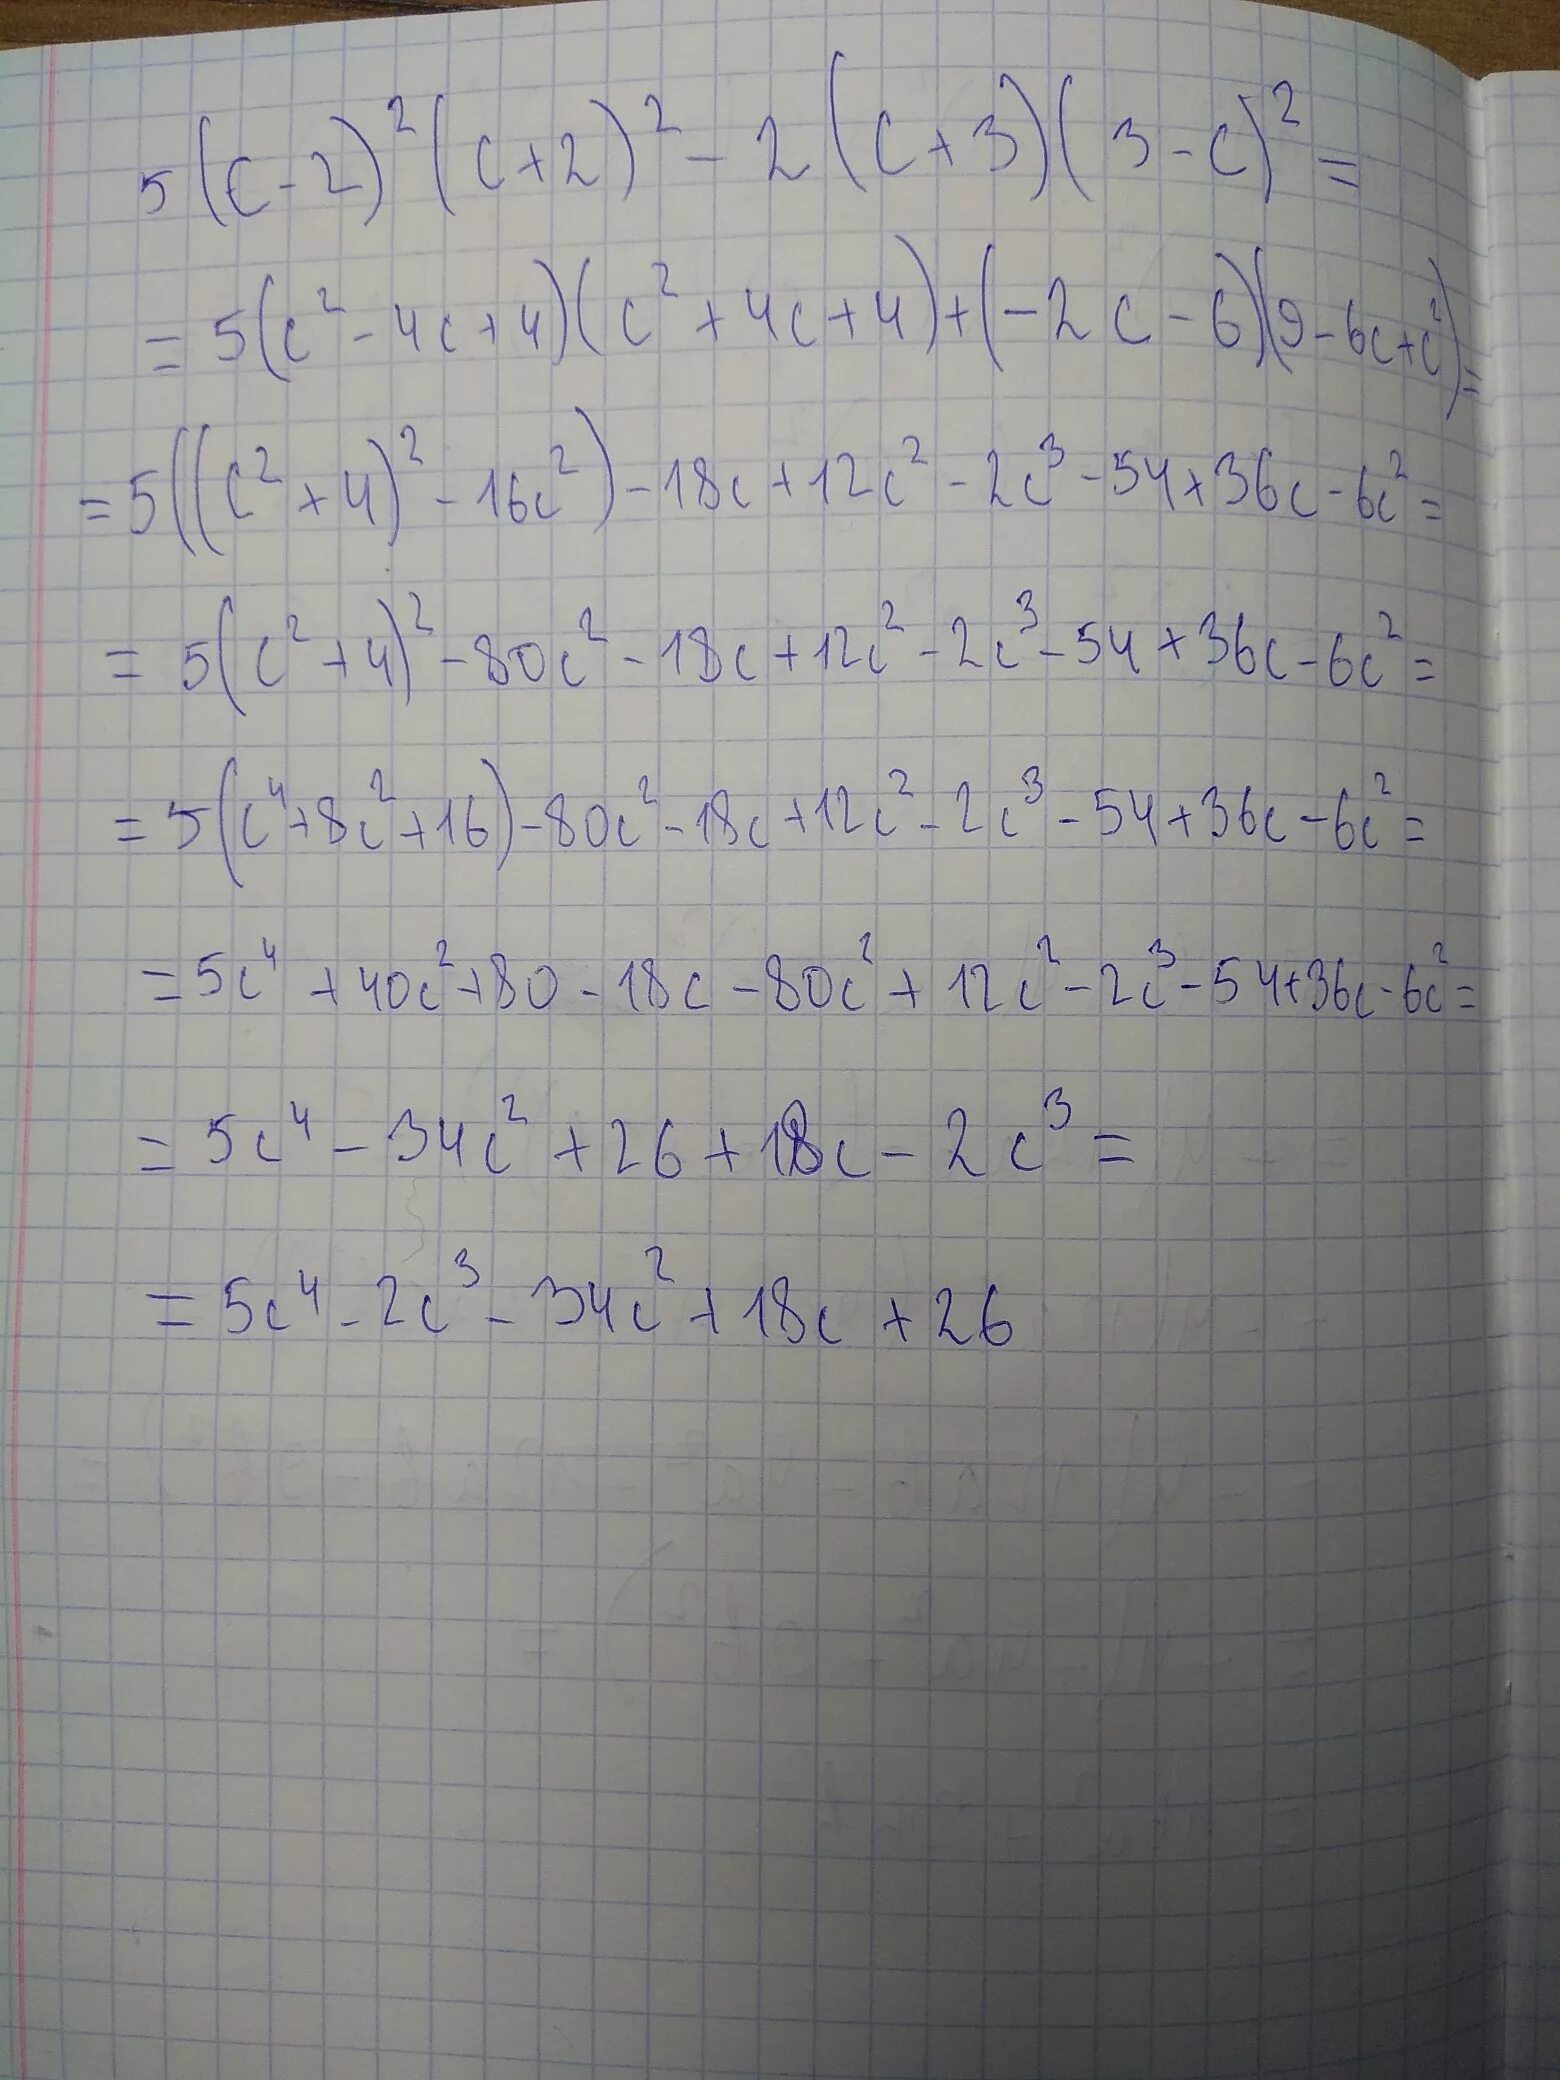 5(c-2)²(c+2)²-2(c+3)(3-c)²=
=5(c²-4c+4)(c²+4c+4)+(-2c-6)(9-6c+c²)=
=5((c²+4)²-16c²)-18c+12c²-2c³-54+36c-6c²=
=5(c²+4)²-80c²-18c+12c²-2c³-54+36c-6c²=
=5(c⁴+8c²+16)-80c²-18c+12c²-2c³-54+36c-6c²=
=5c⁴+40c²+80-18c-80c²+12c²-2c³-54+36c-6c²=
=5c⁴-34c²+26+18c-2c³=
=5c⁴-2c³-34c²+18c+26